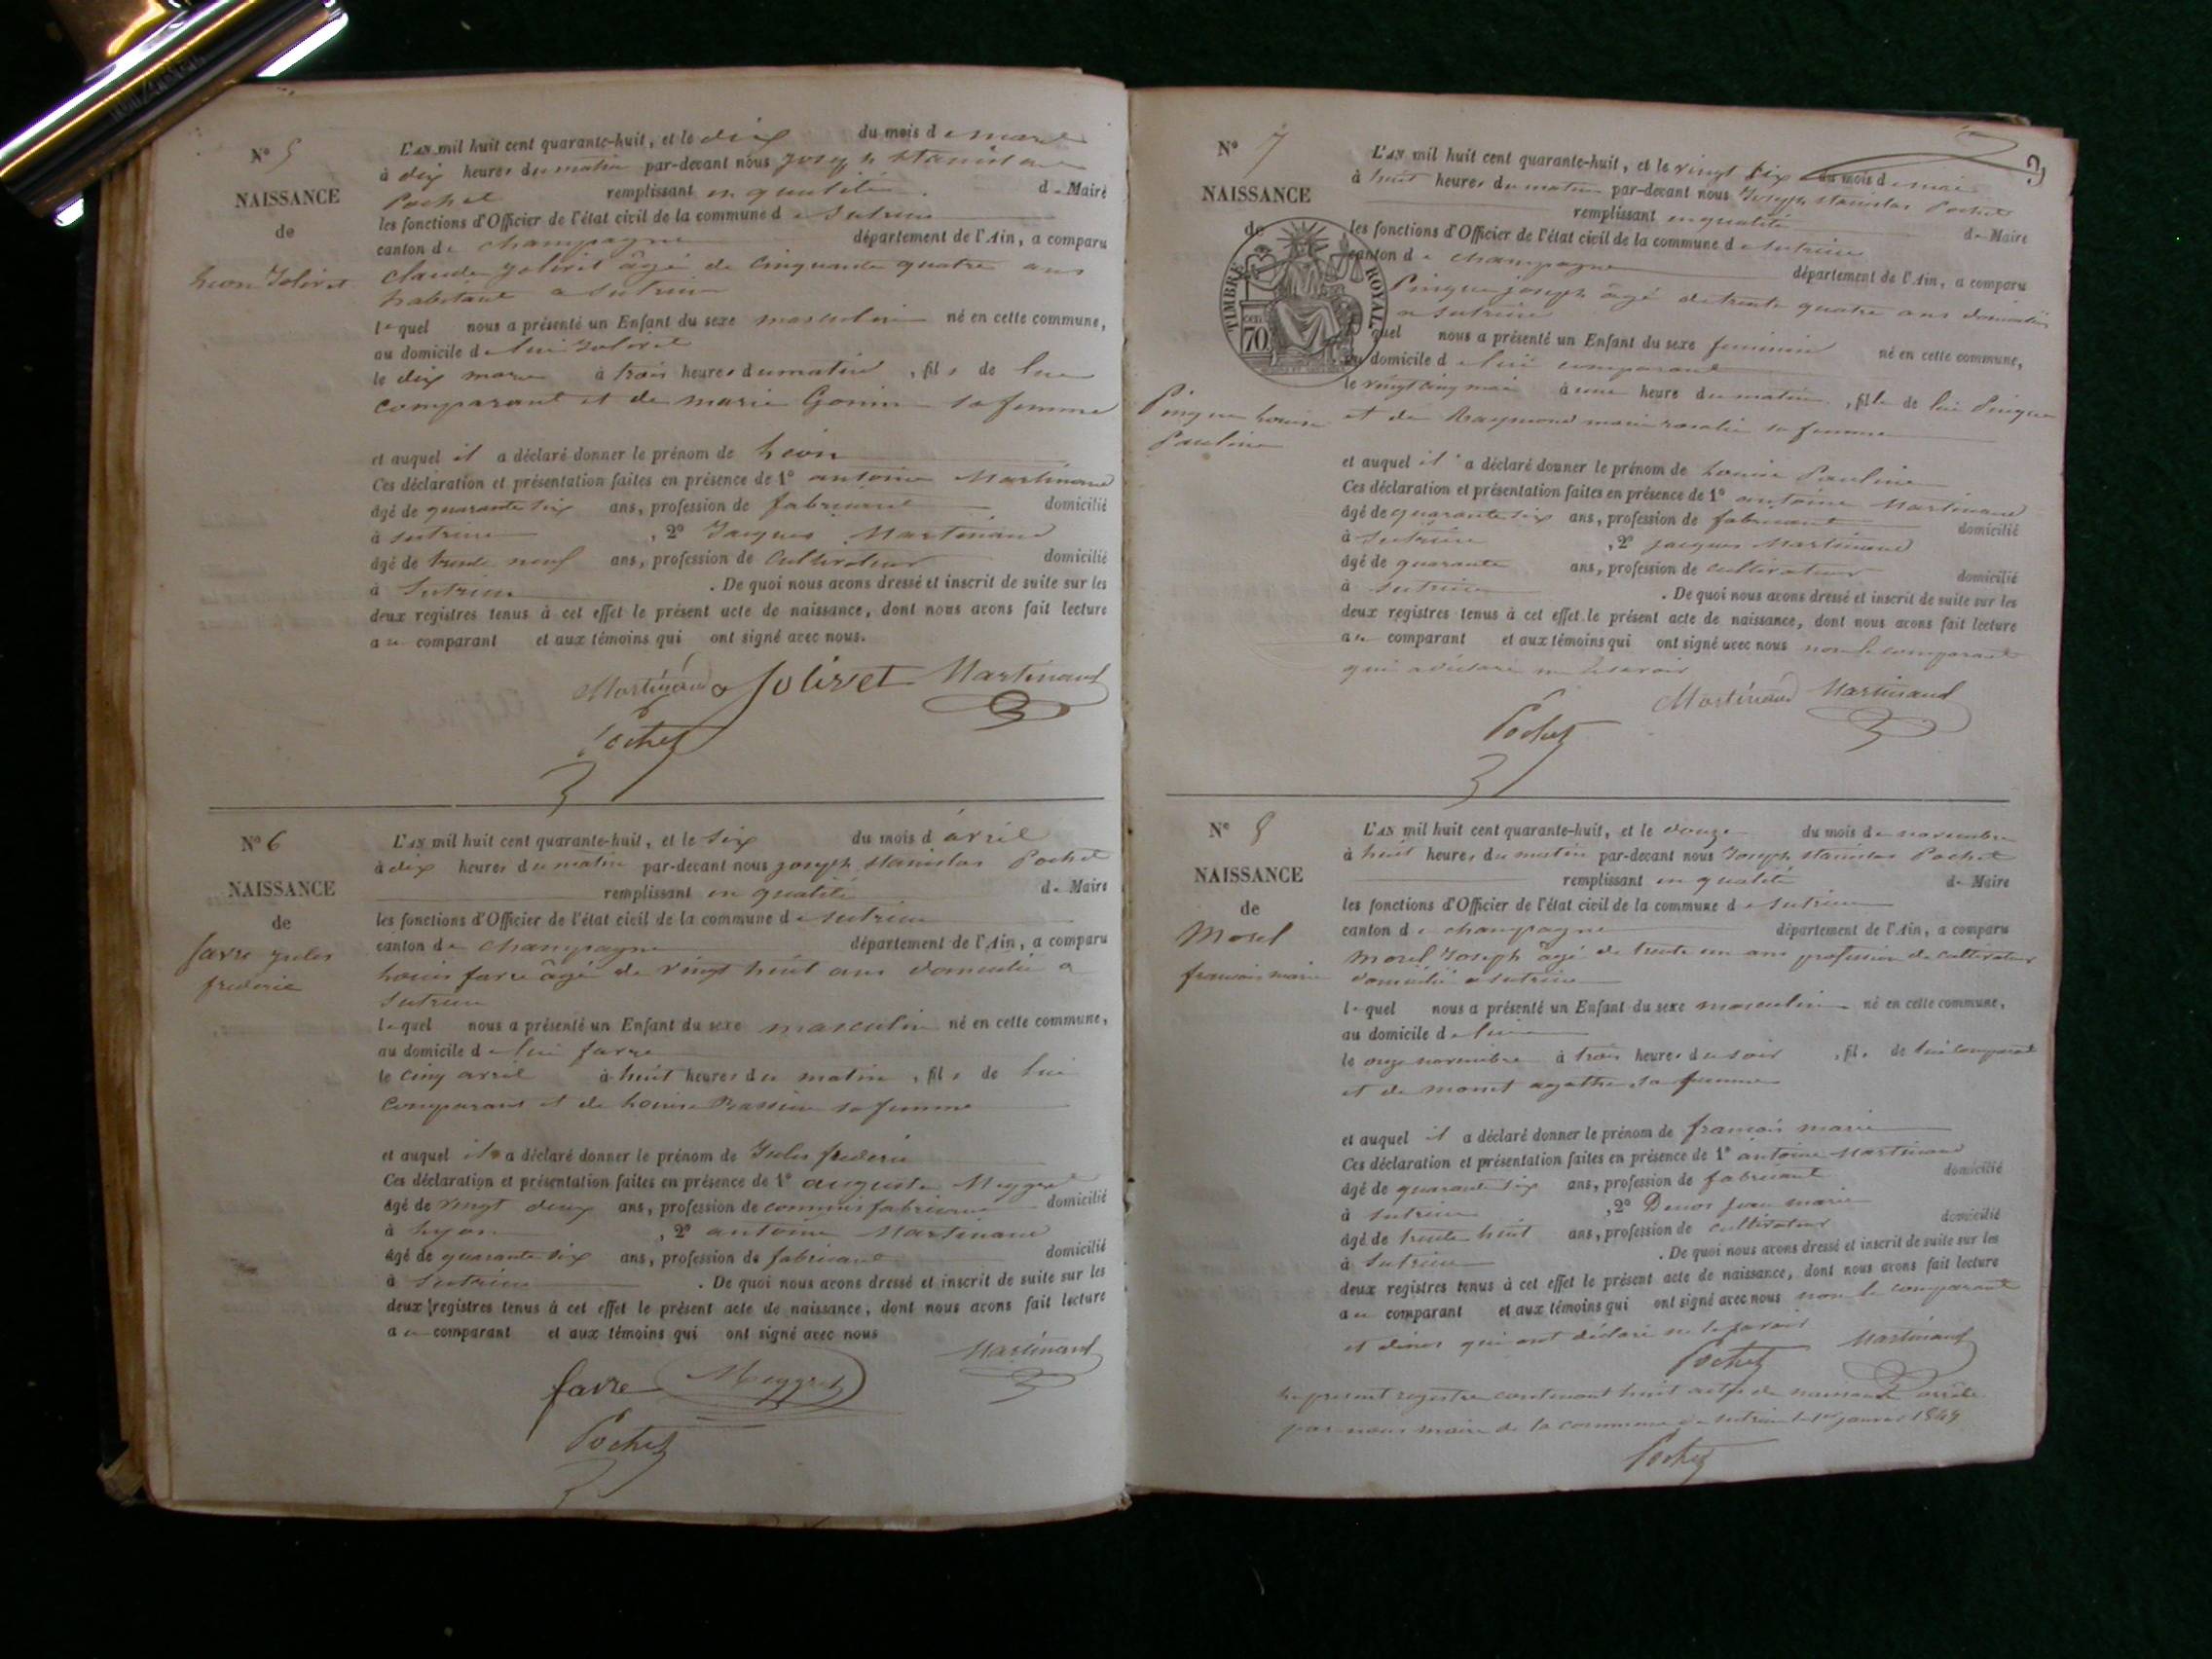 N° 5
NAISSANCE
de
Léon Jolivet
L'AN mil huit cent quarante-huit, et le dix du mois de mars
à dix heures du matin par-devant nous joseph stanislas
Pochet remplissant en qualité de Maire
les fonctions d'Officier de l'état civil de la commune de Sutrieu
canton de champagne département de l'Ain, a comparu
claude jolivet âgé de cinquante quatre ans
habitant a Sutrieu
lequel nous a présenté un Enfant du sexe masculin né en cette commune,
au domicile de lui Jolivet
le dix mars à trois heures du matin, fils de lui
comparant et de marie Gonin sa femme
et auquel il a déclaré donner le prénom de Léon
Ces déclaration et présentation faites en présence de 1° antoine Martinand
âgé de quarante six ans, profession de fabricant domicilié
à Sutrieu, 2° Jacques Martinand
âgé de trente neuf ans, profession de cultivateur domicilié
à Sutrieu. De quoi nous avons dressé et inscrit de suite sur les
deux registres tenus à cet effet le présent acte de naissance, dont nous avons fait lecture
au comparant et aux témoins qui ont signé avec nous.
Martinand Jolivet Martinand
Pochet
N° 6
NAISSANCE
de
favre jules
frederic
L'AN mil huit cent quarante-huit, et le six du mois d avril
à dix heures du matin par-devant nous joseph stanislas Pochet
remplissant en qualité de Maire
les fonctions d'Officier de l'état civil de la commune de Sutrieu
canton de champagne département de l'Ain, a comparu
Louis favre âgé de vingt huit ans domicilié a
Sutrieu
lequel nous a présenté un Enfant du sexe masculin né en cette commune,
au domicile de lui favre
le cinq avril à huit heures du matin, fils de lui
comparant et de Louise sa femme
et auquel il a déclaré donner le prénom de Jules frederic
Ces déclaration et présentation faites en présence de 1° auguste Meggret
âgé de vingt deux ans, profession de commis fabricant domicilié
à Lyon, 2° antoine Martinand
âgé de quarante six ans, profession de fabricant domicilié
à Sutrieu. De quoi nous avons dressé et inscrit de suite sur les
deux registres tenus à cet effet le présent acte de naissance, dont nous avons fait lecture
au comparant et aux témoins qui ont signé avec nous
Martinand
favre Meggret
Pochet
N° 7
NAISSANCE
de
TIMBRE ROYAL
70
Pingue Louise
Pauline
L'AN mil huit cent quarante-huit, et le vingt six du mois de mai
à huit heures du matin par-devant nous Joseph stanislas Pochet
remplissant en qualité de Maire
les fonctions d'Officier de l'état civil de la commune de Sutrieu
canton de champagne département de l'Ain, a comparu
Pingue joseph âgé de trente quatre ans domicilié
a Sutrieu
quel nous a présenté un Enfant du sexe feminin né en cette commune,
au domicile de lui comparant
le vingt cinq mai à une heure du matin, fille de lui Pingue
et de Raymond marie rosalie sa femme
et auquel il a déclaré donner le prénom de Louise Pauline
Ces déclaration et présentation faites en présence de 1° antoine Martinand
âgé de quarante six ans, profession de fabricant domicilié
à Sutrieu, 2° jacques Martinand
âgé de quarante ans, profession de cultivateur domicilié
à Sutrieu. De quoi nous avons dressé et inscrit de suite sur les
deux registres tenus à cet effet le présent acte de naissance, dont nous avons fait lecture
au comparant et aux témoins qui ont signé avec nous non le comparant
qui a déclaré ne le savoir
Martinand Martinand
Pochet
N° 8
NAISSANCE
de
Morel
francois marie
L'AN mil huit cent quarante-huit, et le douze du mois de novembre
à huit heures du matin par-devant nous Joseph stanislas Pochet
remplissant en qualité de Maire
les fonctions d'Officier de l'état civil de la commune de Sutrieu
canton de champagne département de l'Ain, a comparu
Morel Joseph âgé de trente un ans profession de cultivateur
domicilié a Sutrieu
lequel nous a présenté un Enfant du sexe masculin né en cette commune,
au domicile de lui
le onze novembre à trois heures du soir, fils de lui comparant
et de agathe sa femme
et auquel il a déclaré donner le prénom de francois marie
Ces déclaration et présentation faites en présence de 1° antoine Martinand
âgé de quarante six ans, profession de fabricant domicilié
à Sutrieu, 2° jean marie
âgé de trente huit ans, profession de cultivateur domicilié
à Sutrieu. De quoi nous avons dressé et inscrit de suite sur les
deux registres tenus à cet effet le présent acte de naissance, dont nous avons fait lecture
au comparant et aux témoins qui ont signé avec nous non le comparant
et qui ont déclaré ne le savoir
Pochet Martinand
Le present registre contenant huit actes de naissance arrêté
par nous maire de la commune de Sutrieu le 1er janvier 1849
Pochet